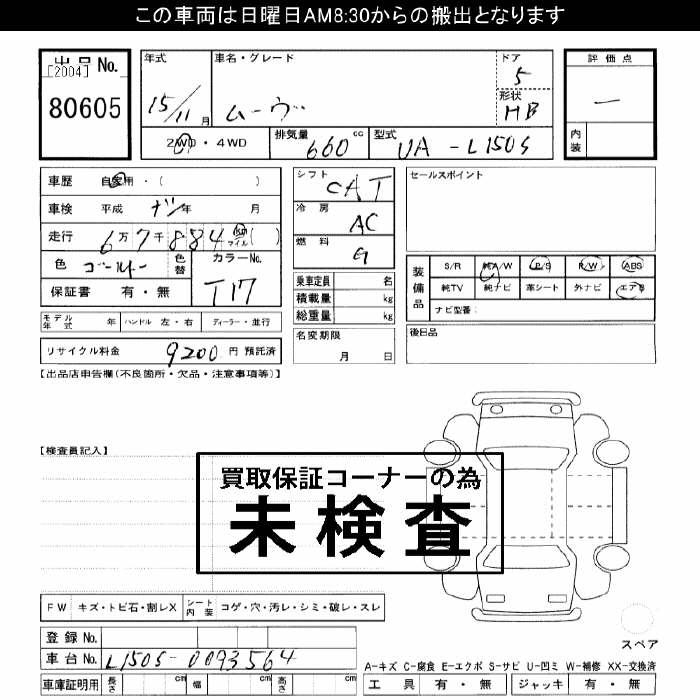 この車両は日曜日AM8:30からの搬出となります
出品 No.
[2004]
80605
年式 15/11 月
車名・グレード ムーヴ
ドア 5
形状 HB
2WD・4WD
排気量 660 cc
型式 UA-L150S
評価点
—
内装
車歴 自家用・( )
車検 平成 ナシ 年 月
走行 6万7千884 km マイル ( )
色 ゴールド 色替 カラーNo. T17
保証書 有・無
シフト CAT
冷房 AC
燃料 G
乗車定員 名
積載量 kg
総重量 kg
名変期限 月 日
セールスポイント
装備品 S/R 純A/W P/S P/W ABS
純TV 純ナビ 革シート 外ナビ エアB
ナビ型番:
後日品
モデル年式 年 ハンドル 左・右 ディーラー・並行
リサイクル料金 9200 円 預託済
【出品店申告欄(不良箇所・欠品・注意事項等)】
【検査員記入】
買取保証コーナーの為
未検査
FW キズ・トビ石・割レX シート内装 コゲ・穴・汚レ・シミ・破レ・スレ
登録 No.
車台 No. L150S-0093564
車庫証明用 長さ cm 幅 cm 高さ cm
スペア
A-キズ C-腐食 E-エクボ S-サビ U-凹ミ W-補修 XX-交換済
工具 有・無 ジャッキ 有・無